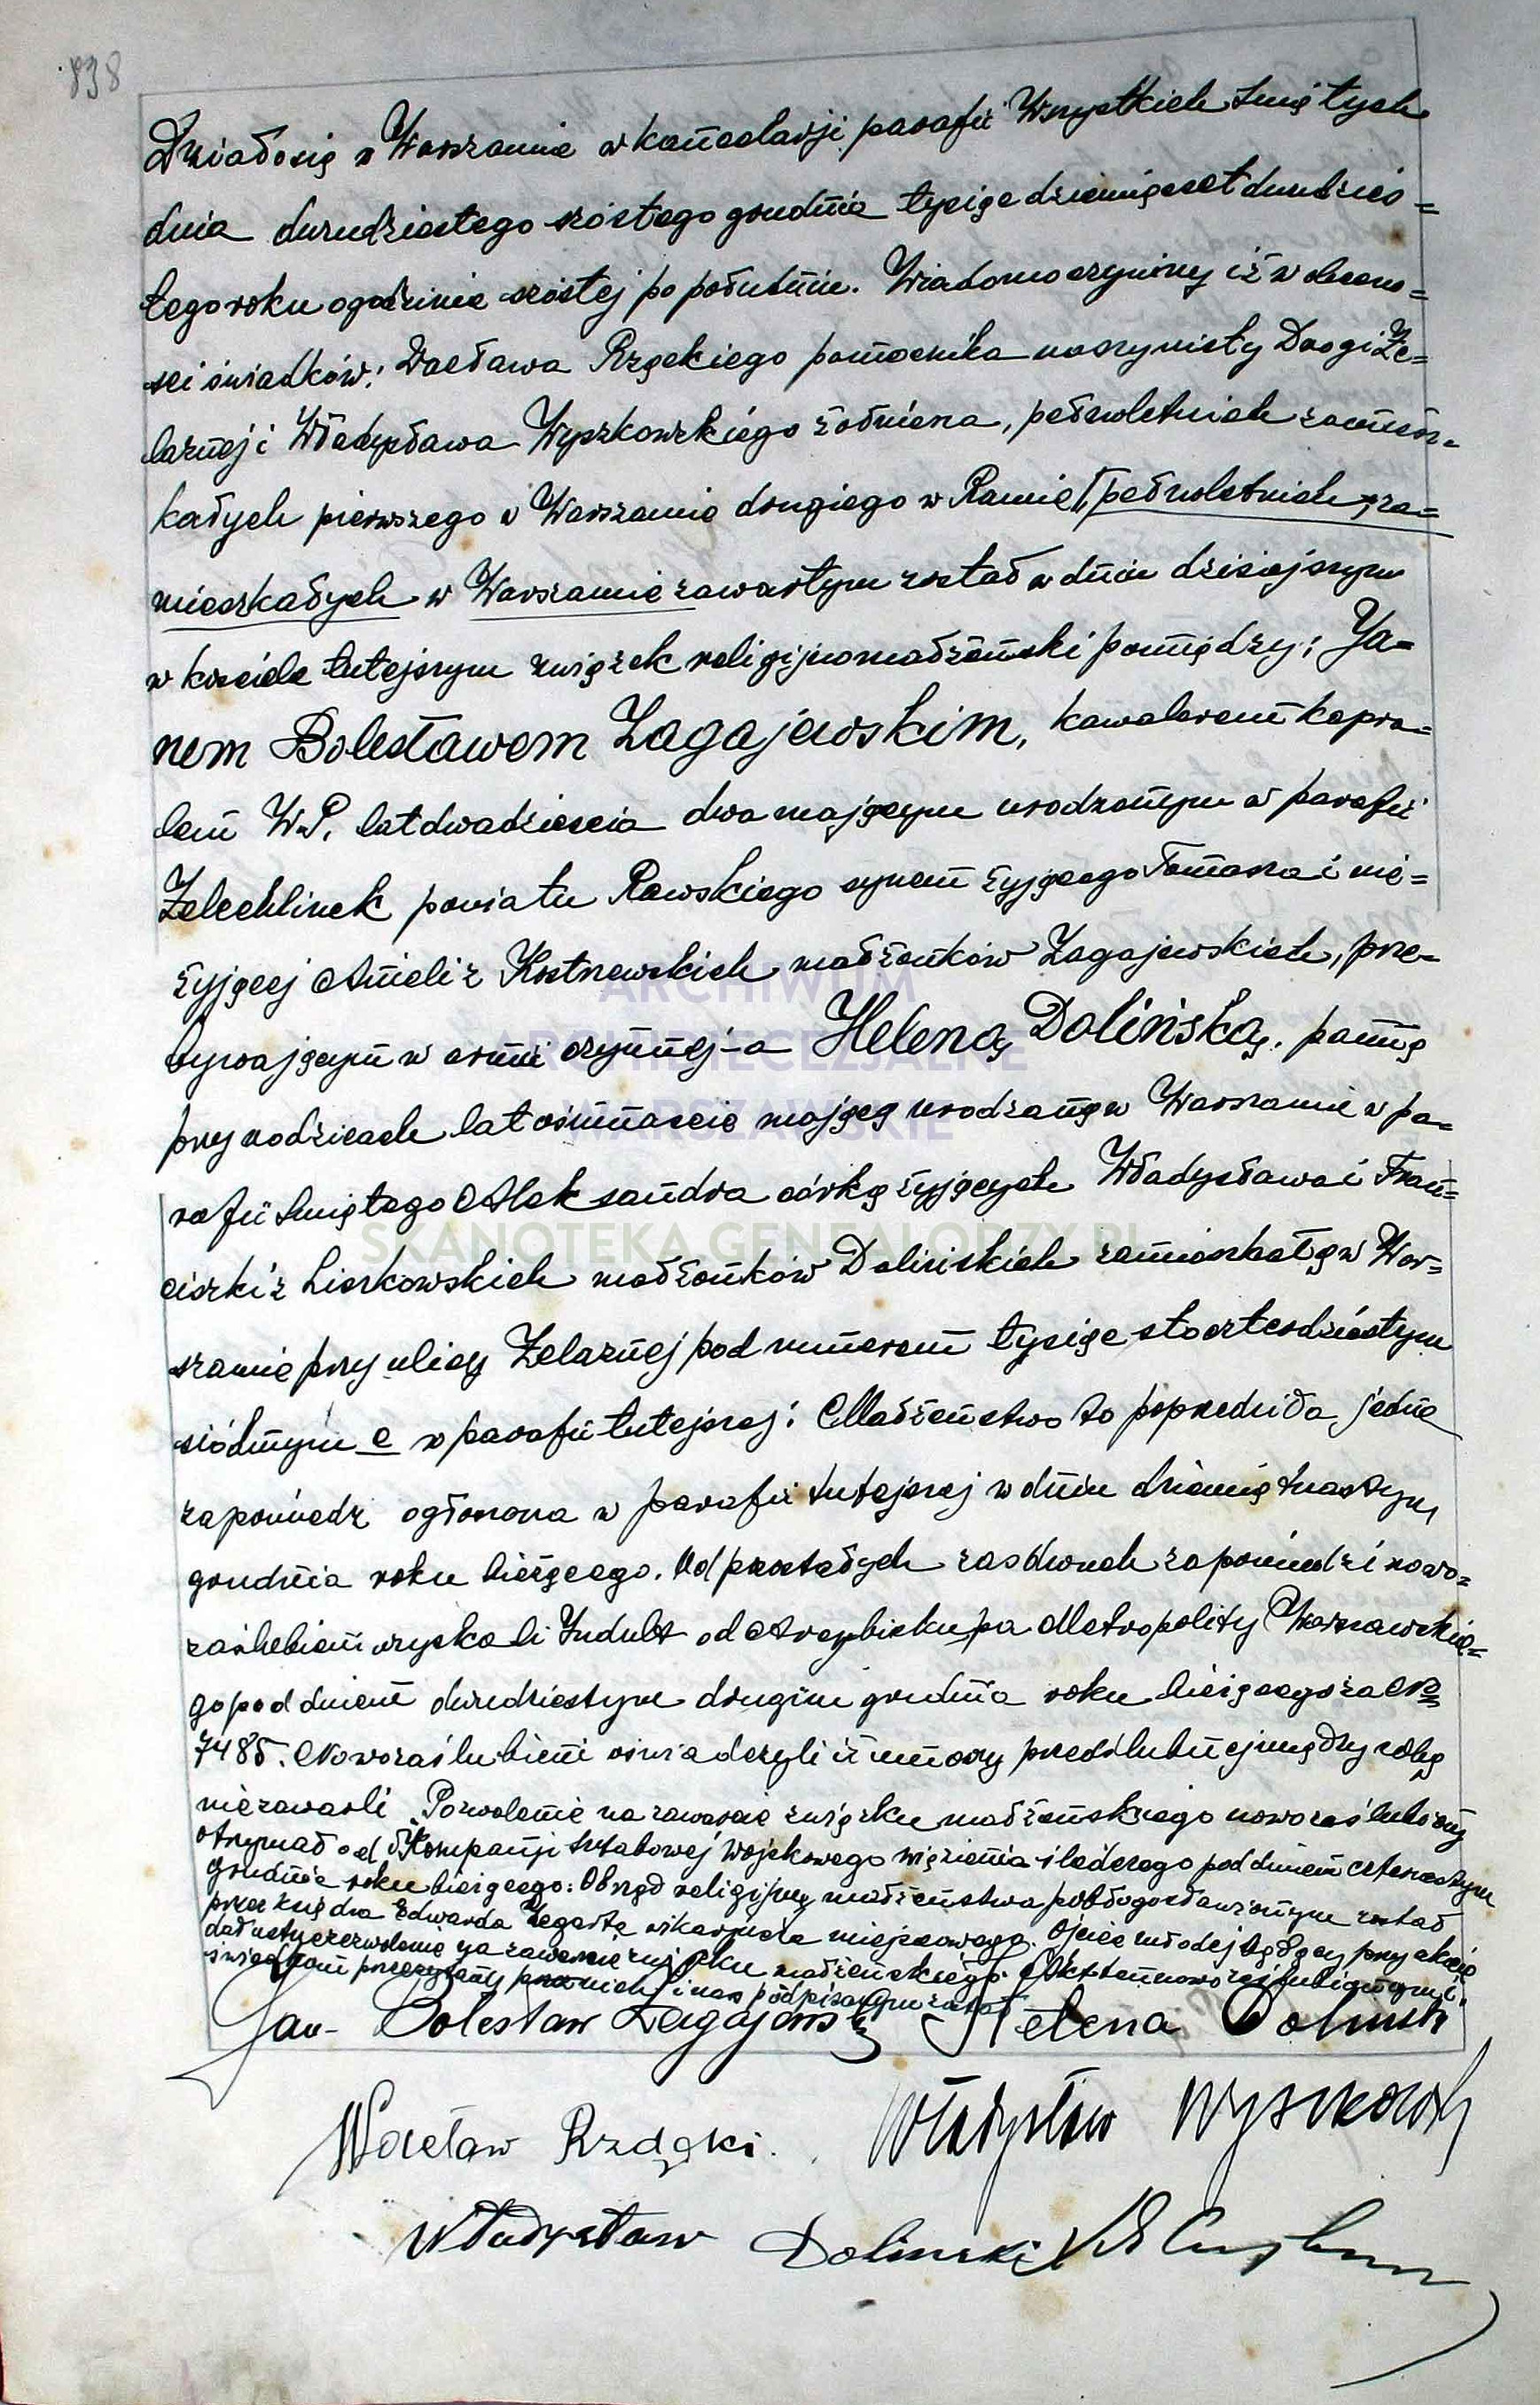 838
Działo się w Warszawie w kancelarji parafii Wszystkich Świętych
dnia dwudziestego szóstego grudnia tysiąc dziewięćset dwudzies=
tego roku o godzinie szóstej po południu. Wiadomo czynimy iż w obecno=
ści świadków: Wacława Rząckiego pomocnika maszynisty Drogi Że=
laznej i Władysława Wyszkowskiego żołnierza, pełnoletnich zamiesz=
kałych pierwszego w Warszawie drugiego w Rawie (pełnoletnich, za=
mieszkałych w Warszawie zawartym został w dniu dzisiejszym
w kościele tutejszym związek religijnomałżeński pomiędzy: Ja=
nem Bolesławem Zagajewskim, kawalerem kapra=
lem W.P. lat dwadzieścia dwa mającym urodzonym w parafii
Żelechlinek powiatu Rawskiego synem żyjącego Tomasza i nie=
żyjącej Anieli z małżonków Zagajewskich, prze=
bywającym w armii czynnej – a Heleną Dolińską, panną
przy rodzicach lat ośmnaście mającą urodzoną w Warszawie w pa=
rafii Świętego Aleksandra córką żyjących Władysława i Fran=
ciszki z małżonków Dolińskich zamieszkałą w War=
szawie przy ulicy Żelaznej pod numerem tysiąc sto czterdziestym
siódmym c w parafii tutejszej: Małżeństwo to poprzedziła jedna
zapowiedź ogłoszona w parafii tutejszej w dniu dziewiętnastym
grudnia roku bieżącego. Od pozostałych zaś dwóch zapowiedzi nowo=
zaślubieni uzyskali Indult od Arcybiskupa Metropolity Warszawskie=
go pod dniem dwudziestym drugim grudnia roku bieżącego za №
7485. Nowozaślubieni oświadczyli iż umowy przedślubnej między sobą
nie zawarli. Pozwolenie na zawarcie związku małżeńskiego nowozaślubiony
otrzymał od Kompanji sztabowej Wojskowego więzienia śledczego pod dniem czternastym
grudnia roku bieżącego: Obrząd religijny małżeństwa pobłogosławionym został
przez księdza Edwarda wikarjusza miejscowego. Ojciec młodej będący przy akcie
dał ustne zezwolenie na zawarcie związku małżeńskiego. Akt ten nowozaślubionym i
świadkom przeczytany przez nich i nas podpisanym został
Jan Bolesław Zagajewski Helena Dolińska
Wacław Rządki. Władysław Wyszkowski
Władysław Dolinski